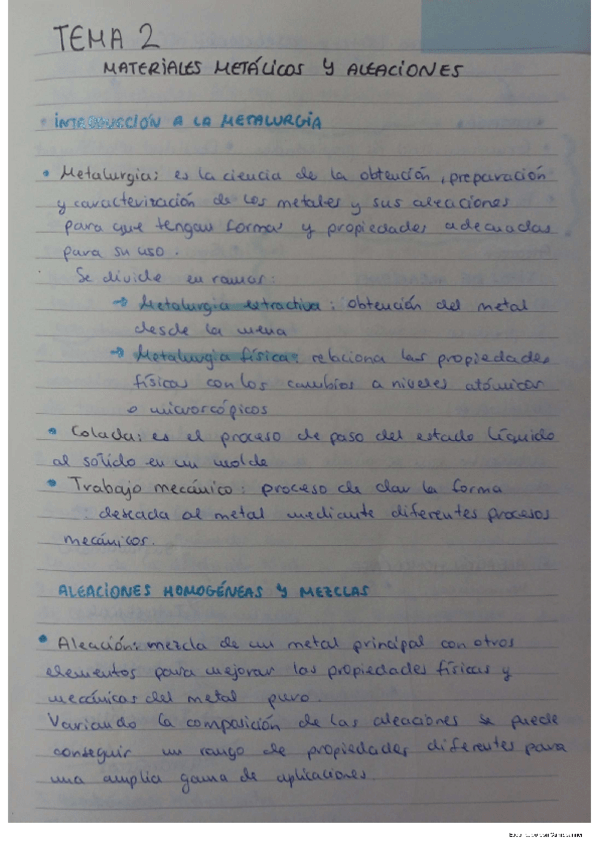 TEMA 2
MATERIALES METÁLICOS Y ALEACIONES
INTRODUCCIÓN A LA METALURGIA
• Metalurgia: es la ciencia de la obtención, preparación
y caracterización de los metales y sus aleaciones
para que tengan formas y propiedades adecuadas
para su uso.
Se divide en ramas:
→ Metalurgia extractiva: obtención del metal
desde la mena
→ Metalurgia física: relaciona las propiedades
físicas con los cambios a niveles atómicos
o microscópicos
• Colada: es el proceso de paso del estado líquido
al sólido en un molde
• Trabajo mecánico: proceso de dar la forma
deseada al metal mediante diferentes procesos
mecánicos.
ALEACIONES HOMOGÉNEAS Y MEZCLAS
• Aleación: mezcla de un metal principal con otros
elementos para mejorar las propiedades físicas y
mecánicas del metal puro.
Variando la composición de las aleaciones se puede
conseguir un rango de propiedades diferentes para
una amplia gama de aplicaciones.